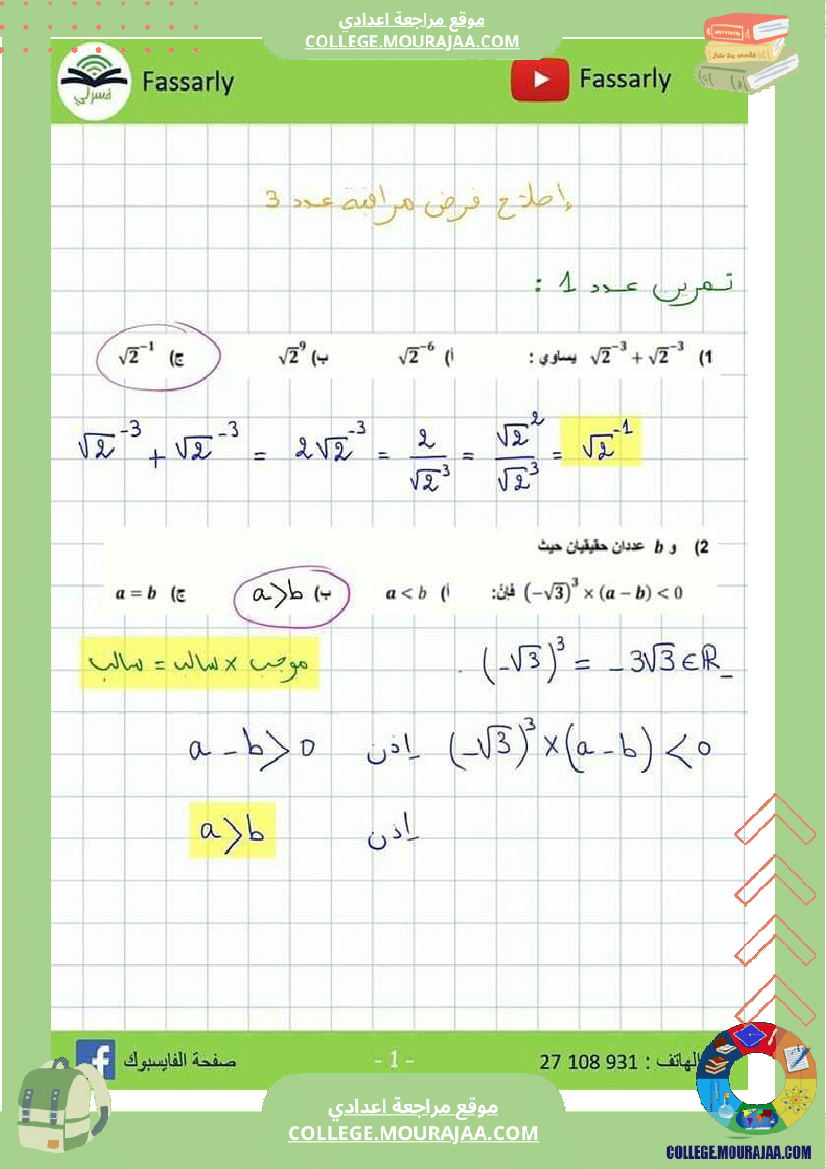 موقع مراجعة اعدادي
COLLEGE.MOURAJAA.COM
Fassarly
فسرلي
Fassarly
إصلاح فرض مراقبة عدد 3
تمرين عدد 1 :
1) √2⁻³ + √2⁻³ يساوي : أ) √2⁻⁶ ب) √2⁹ ج) √2⁻¹
√2⁻³ + √2⁻³ = 2√2⁻³ = 2/√2³ = √2²/√2³ = √2⁻¹
2) و b عددان حقيقيان حيث
(−√3)³ × (a − b) < 0 فإنّ: أ) a < b ب) a > b ج) a = b
(−√3)³ = −3√3 ∈ ℝ₋ .
موجب × سالب = سالب
(−√3)³ × (a − b) < 0 إذن a − b > 0
إذن a > b
صفحة الفايسبوك
- 1 -
الهاتف : 27 108 931
موقع مراجعة اعدادي
COLLEGE.MOURAJAA.COM
COLLEGE.MOURAJAA.COM